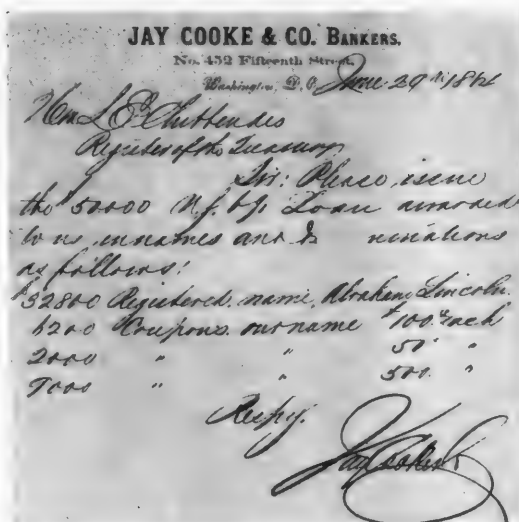 JAY COOKE & CO. BANKERS.
No. 452 Fifteenth Street,
Washington, D.C. June 29th 1864
Hon L E Chittenden
Register of the Treasury
Sir: Please issue
the $50000 of Loan awarded
to us, in names and
as follows:
$32800 Registered name, Abraham Lincoln.
6200 Coupons our name $100 each
2000 " " 50 "
9000 " " 500 "
Respy.
Jay Cooke & Co